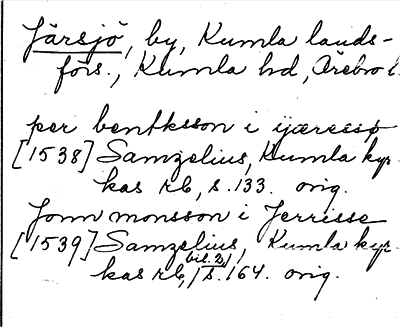 Järsjö, by, Kumla lands-
förs., Kumla hd, Örebro l.
per bentksson i ijæressø
[1538] Samzelius, Kumla kyr-
kas rb, s. 133. orig.
Jonn monsson i Jerrisse
[1539] Samzelius, Kumla kyr-
kas rb, bil. 2, s. 164. orig.